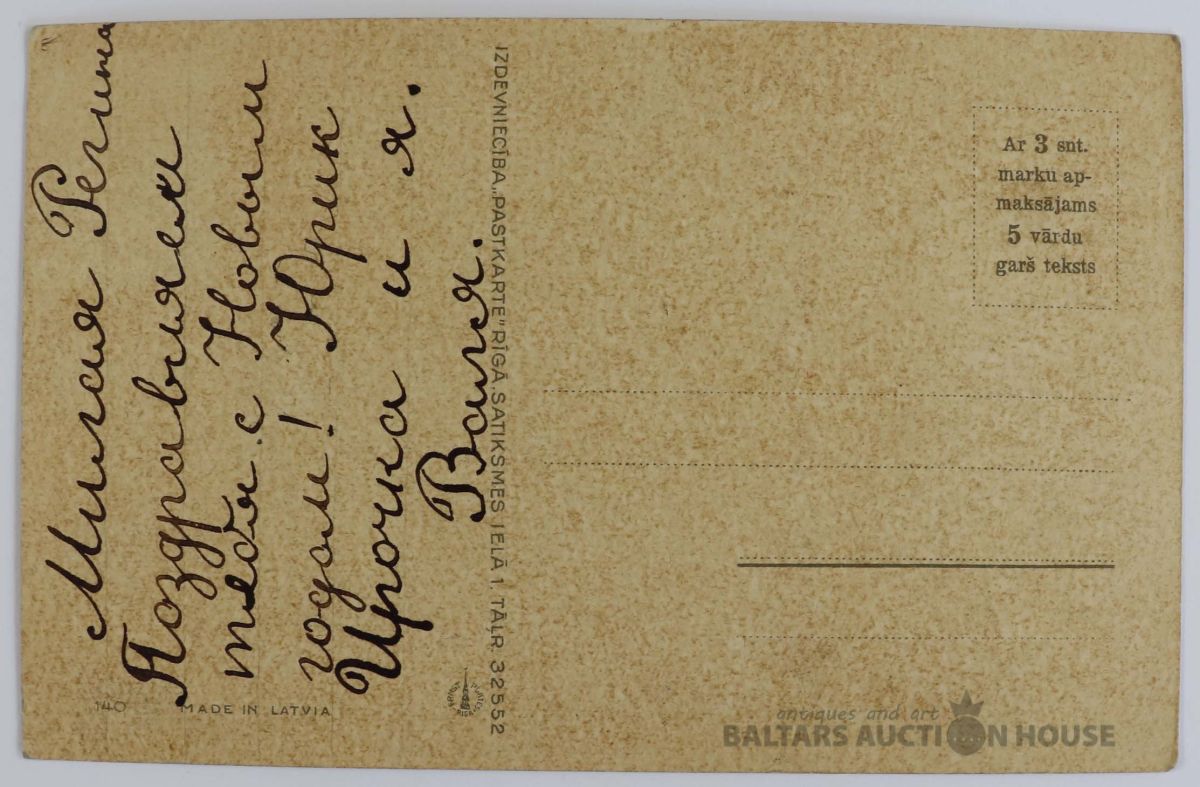 Милая Регина
Поздравляем
тебя с Новым
годом! Юрик
Ирочка и я.
Валя.
140
MADE IN LATVIA
IZDEVNIECĪBA „PASTKARTE" RĪGĀ, SATIKSMES IELĀ 1. TĀLR. 32552
Ar 3 snt.
marku ap-
maksājams
5 vārdu
garš teksts
antiques and art
BALTARS AUCTION HOUSE